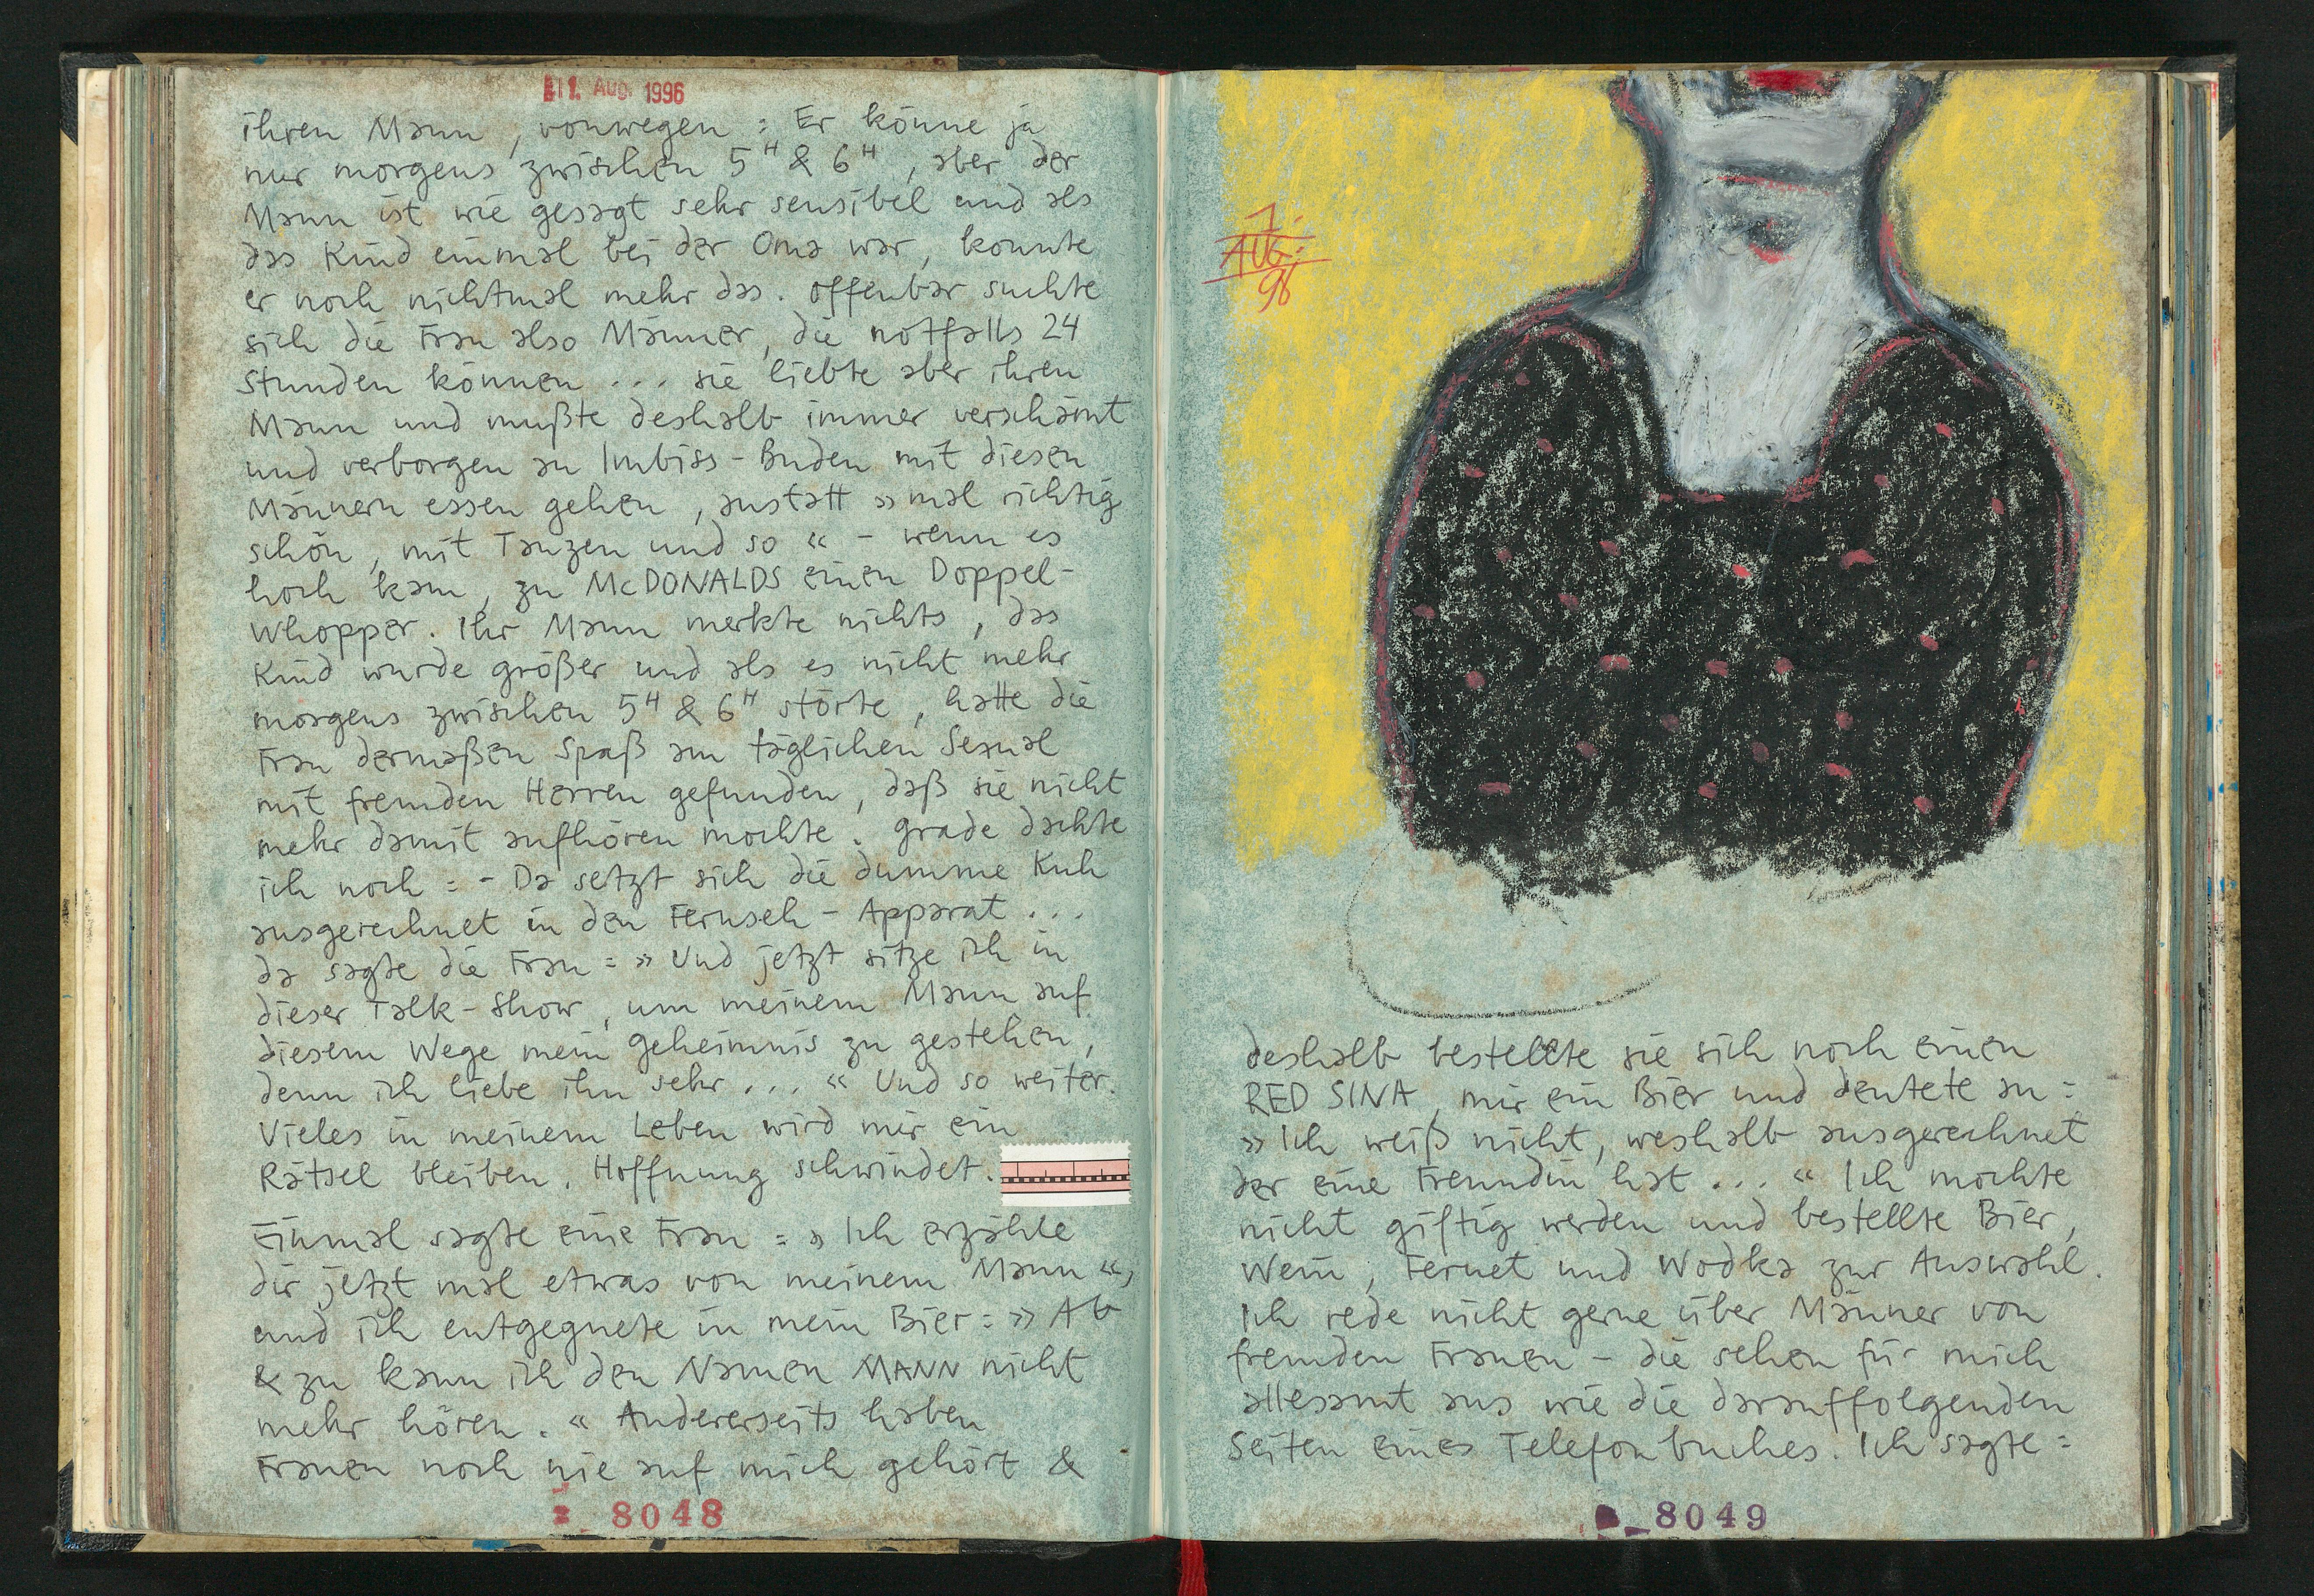 11. AUG. 1996
ihren Mann, vonwegen: Er könne ja
nur morgens zwischen 5ᴴ & 6ᴴ, aber der
Mann ist wie gesagt sehr sensibel und als
das Kind einmal bei der Oma war, konnte
er noch nichtmal mehr das. Offenbar suchte
sich die Frau also Männer, die notfalls 24
Stunden können ... sie liebte aber ihren
Mann und mußte deshalb immer verschämt
und verborgen an Imbiss-Buden mit diesen
Männern essen gehen, anstatt »mal richtig
schön, mit Tanzen und so« – wenn es
hoch kam, zu McDONALDS einen Doppel-
Whopper. Ihr Mann merkte nichts, das
Kind wurde größer und als es nicht mehr
morgens zwischen 5ᴴ & 6ᴴ störte, hatte die
Frau dermaßen Spaß am täglichen Sexual
mit fremden Herren gefunden, daß sie nicht
mehr damit aufhören mochte. Grade dachte
ich noch: - Da setzt sich die dumme Kuh
ausgerechnet in den Fernseh-Apparat ...
da sagte die Frau: »Und jetzt sitze ich in
dieser Talk-Show, um meinem Mann auf
diesem Wege mein Geheimnis zu gestehen,
denn ich liebe ihn sehr ...« Und so weiter.
Vieles in meinem Leben wird mir ein
Rätsel bleiben. Hoffnung schwindet.
Einmal sagte eine Frau: »Ich erzähle
dir jetzt mal etwas von meinem Mann«,
und ich entgegnete in mein Bier: »Ab
& zu kann ich den Namen MANN nicht
mehr hören.« Andererseits haben
Frauen noch nie auf mich gehört &
8048
7.
AUG.
96
deshalb bestellte sie sich noch einen
RED SINA, mir ein Bier und deutete an:
»Ich weiß nicht, weshalb ausgerechnet
der eine Freundin hat ...« Ich mochte
nicht giftig werden und bestellte Bier,
Wein, Fernet und Wodka zur Auswahl.
Ich rede nicht gerne über Männer von
fremden Frauen – die sehen für mich
allesamt aus wie die darauffolgenden
Seiten eines Telefonbuches. Ich sagte:
8049